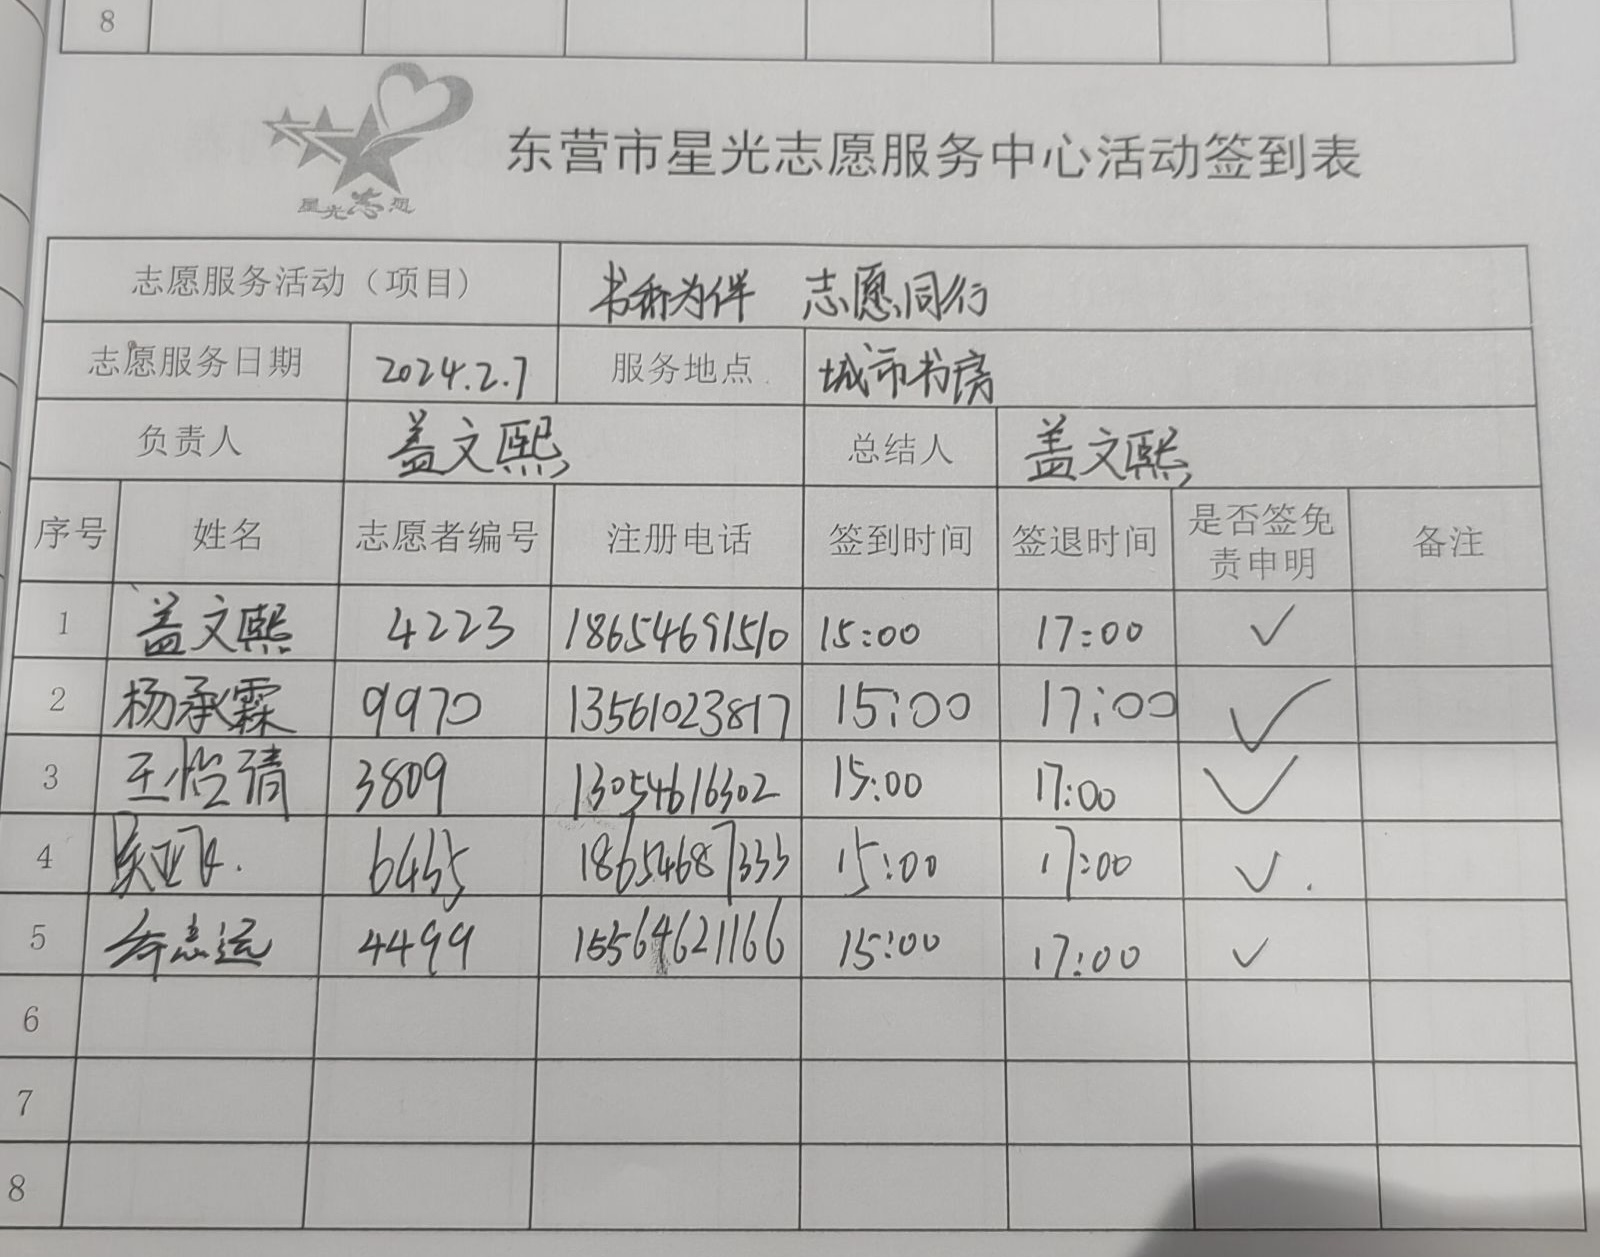 8
星光志愿
东营市星光志愿服务中心活动签到表
志愿服务活动（项目） 书香为伴 志愿同行
志愿服务日期 2024.2.7 服务地点 城市书房
负责人 盖文熙 总结人 盖文熙
序号 姓名 志愿者编号 注册电话 签到时间 签退时间 是否签免责申明 备注
1 盖文熙 4223 18654691510 15:00 17:00 ✓
2 杨承霖 9970 13561023817 15:00 17:00 ✓
3 王怡清 3809 13054616302 15:00 17:00 ✓
4 6435 18654687333 15:00 17:00 ✓
5 志远 4499 15564621166 15:00 17:00 ✓
6
7
8